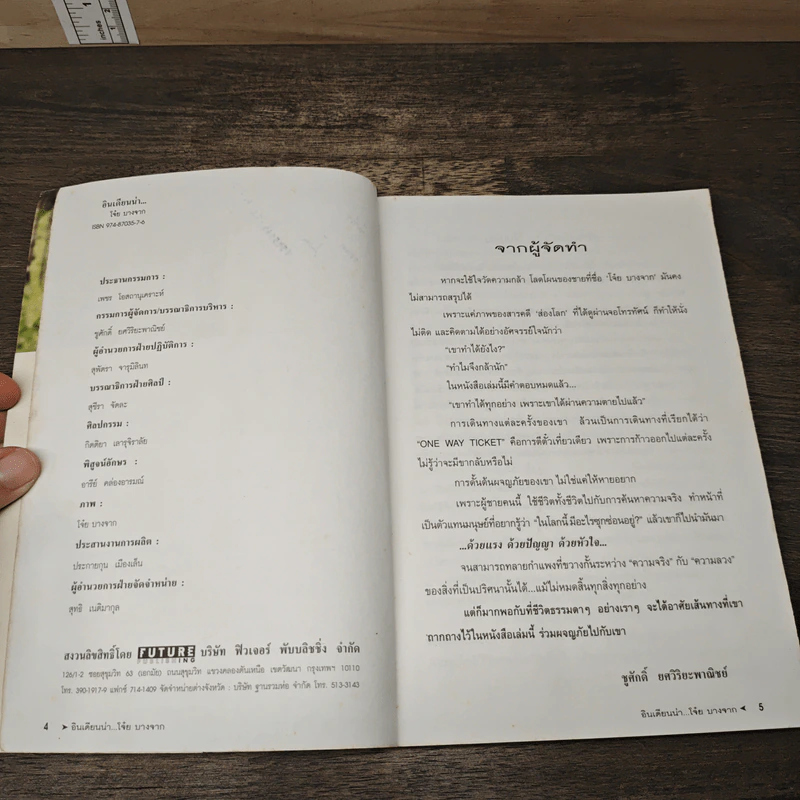 inches
1
2
อินเดียนน่า...
โจ๋ย บางจาก
ISBN 974-87035-7-6
ประธานกรรมการ :
เพชร โอสถานุเคราะห์
กรรมการผู้จัดการ/บรรณาธิการบริหาร :
ชูศักดิ์ ยศวิริยะพาณิชย์
ผู้อำนวยการฝ่ายปฏิบัติการ :
สุพัตรา จารุมิลินท
บรรณาธิการฝ่ายศิลป์ :
สุชีรา จัตละ
ศิลปกรรม :
กิตติยา เลารุจิราลัย
พิสูจน์อักษร :
อารีย์ คล่องอารมณ์
ภาพ :
โจ๋ย บางจาก
ประสานงานการผลิต :
ประกายกุน เมืองเล็น
ผู้อำนวยการฝ่ายจัดจำหน่าย :
สุทธิ เนติมากุล
สงวนลิขสิทธิ์โดย FUTURE PUBLISHING บริษัท ฟิวเจอร์ พับบลิชชิ่ง จำกัด
126/1-2 ซอยสุขุมวิท 63 (เอกมัย) ถนนสุขุมวิท แขวงคลองตันเหนือ เขตวัฒนา กรุงเทพฯ 10110
โทร. 390-1917-9 แฟกซ์ 714-1409 จัดจำหน่ายต่างจังหวัด : บริษัท ฐานรวมห่อ จำกัด โทร. 513-3143
4 ➤ อินเดียนน่า...โจ๋ย บางจาก
จากผู้จัดทำ
หากจะใช้ใจวัดความกล้า โลดโผนของชายที่ชื่อ 'โจ๋ย บางจาก' มันคง
ไม่สามารถสรุปได้
เพราะแค่ภาพของสารคดี 'ส่องโลก' ที่ได้ดูผ่านจอโทรทัศน์ ก็ทำให้นั่ง
ไม่ติด และคิดตามได้อย่างอัศจรรย์ใจนักว่า
"เขาทำได้ยังไง?"
"ทำไมจึงกล้านัก"
ในหนังสือเล่มนี้มีคำตอบหมดแล้ว...
"เขาทำได้ทุกอย่าง เพราะเขาได้ผ่านความตายไปแล้ว"
การเดินทางแต่ละครั้งของเขา ล้วนเป็นการเดินทางที่เรียกได้ว่า
"ONE WAY TICKET" คือการตีตั๋วเที่ยวเดียว เพราะการก้าวออกไปแต่ละครั้ง
ไม่รู้ว่าจะมีขากลับหรือไม่
การดั้นด้นผจญภัยของเขา ไม่ใช่แค่ให้หายอยาก
เพราะผู้ชายคนนี้ ใช้ชีวิตทั้งชีวิตไปกับการค้นหาความจริง ทำหน้าที่
เป็นตัวแทนมนุษย์ที่อยากรู้ว่า "ในโลกนี้มีอะไรซุกซ่อนอยู่?" แล้วเขาก็ไปนำมันมา
...ด้วยแรง ด้วยปัญญา ด้วยหัวใจ...
จนสามารถทลายกำแพงที่ขวางกั้นระหว่าง "ความจริง" กับ "ความลวง"
ของสิ่งที่เป็นปริศนานั้นได้...แม้ไม่หมดสิ้นทุกสิ่งทุกอย่าง
แต่ก็มากพอกับที่ชีวิตธรรมดาๆ อย่างเราๆ จะได้อาศัยเส้นทางที่เขา
ถากถางไว้ในหนังสือเล่มนี้ ร่วมผจญภัยไปกับเขา
ชูศักดิ์ ยศวิริยะพาณิชย์
อินเดียนน่า...โจ๋ย บางจาก ◄ 5